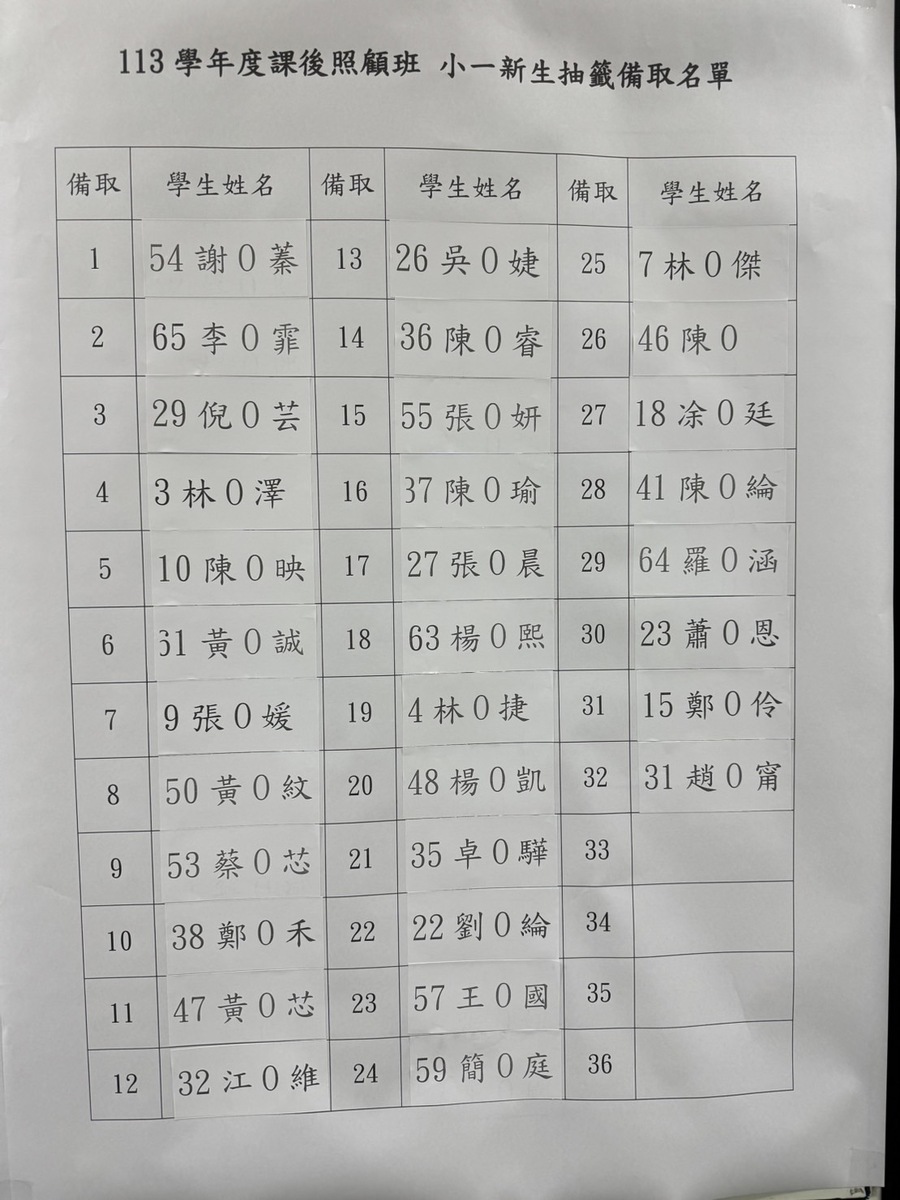 113 學年度課後照顧班 小一新生抽籤備取名單
備取 學生姓名 備取 學生姓名 備取 學生姓名
1 54 謝 O 蓁 13 26 吳 O 婕 25 7 林 O 傑
2 65 李 O 霏 14 36 陳 O 睿 26 46 陳 O
3 29 倪 O 芸 15 55 張 O 妍 27 18 凃 O 廷
4 3 林 O 澤 16 37 陳 O 瑜 28 41 陳 O 綸
5 10 陳 O 映 17 27 張 O 晨 29 64 羅 O 涵
6 61 黃 O 誠 18 63 楊 O 熙 30 23 蕭 O 恩
7 9 張 O 媛 19 4 林 O 捷 31 15 鄭 O 伶
8 50 黃 O 紋 20 48 楊 O 凱 32 31 趙 O 甯
9 53 蔡 O 芯 21 35 卓 O 驊 33
10 38 鄭 O 禾 22 22 劉 O 綸 34
11 47 黃 O 芯 23 57 王 O 國 35
12 32 江 O 維 24 59 簡 O 庭 36